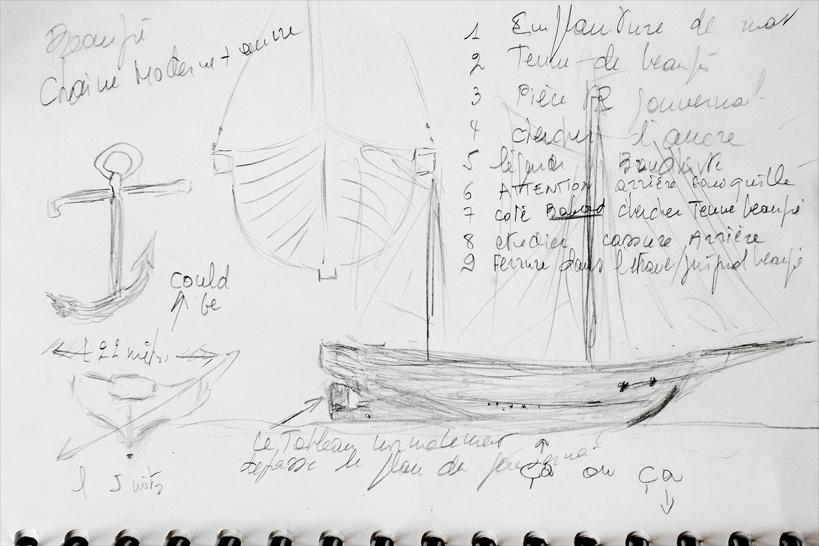 Beaupré
Chaîne Moderne + ancre
1 Emplanture de mat
2 Tenue de beaupré
3 Pièce gouvernail
4 chercher l'ancre
5
6 ATTENTION arrière
7 coté Babord chercher Tenue beaupré
8 etudier cassure Arrière
9 Ferrure dans l'etrave beaupré
could
be
22 mètr.
Le Tableau normalement
depasse le plan du gouvernail
Ça ou ça
5 mètr